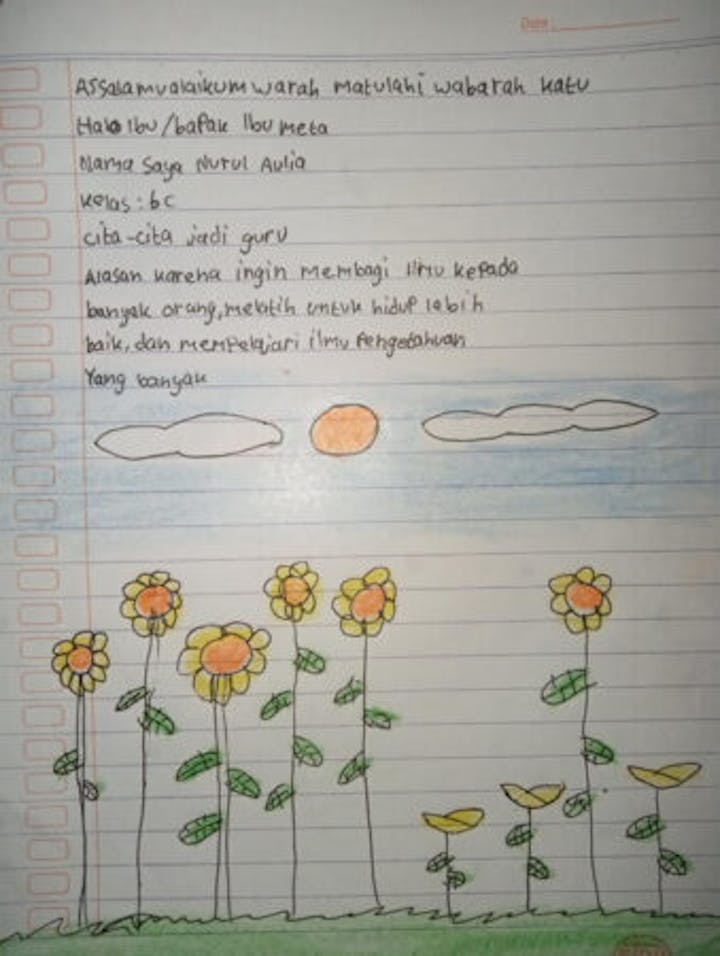 Date:
Assalamualaikum warah matulahi wabarah katu
Halo Ibu/bapak Ibu meta
Nama Saya Nurul Aulia
Kelas : 6c
cita-cita jadi guru
Alasan karena ingin membagi ilmu kepada
banyak orang, melatih untuk hidup lebih
baik, dan mempelajari ilmu pengetahuan
Yang banyak